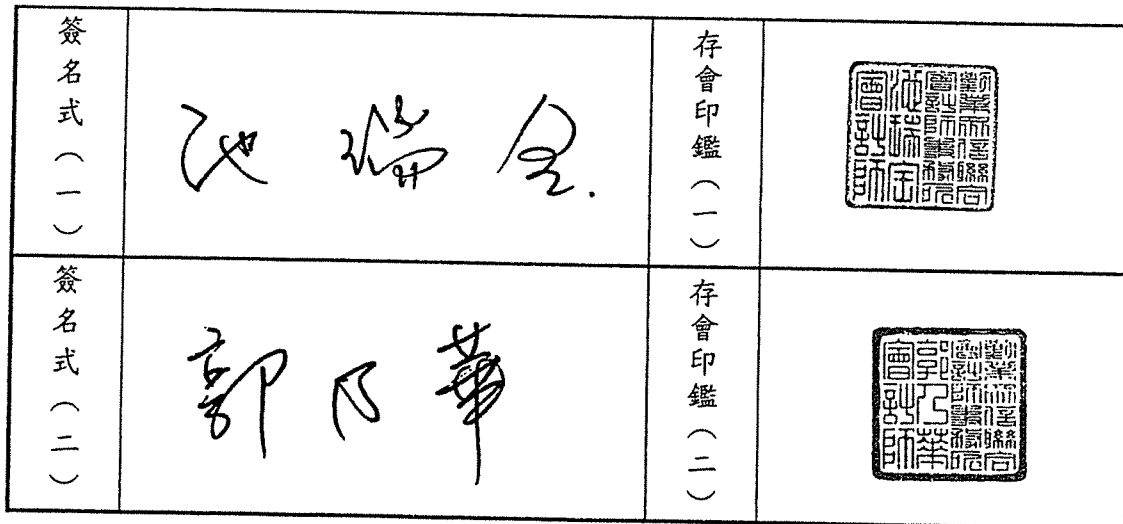 簽名式（一）
池瑞全
存會印鑑（一）
勤業眾信聯合
會計師事務所
池瑞全
會計師
簽名式（二）
郭乃華
存會印鑑（二）
勤業眾信聯合
會計師事務所
郭乃華
會計師